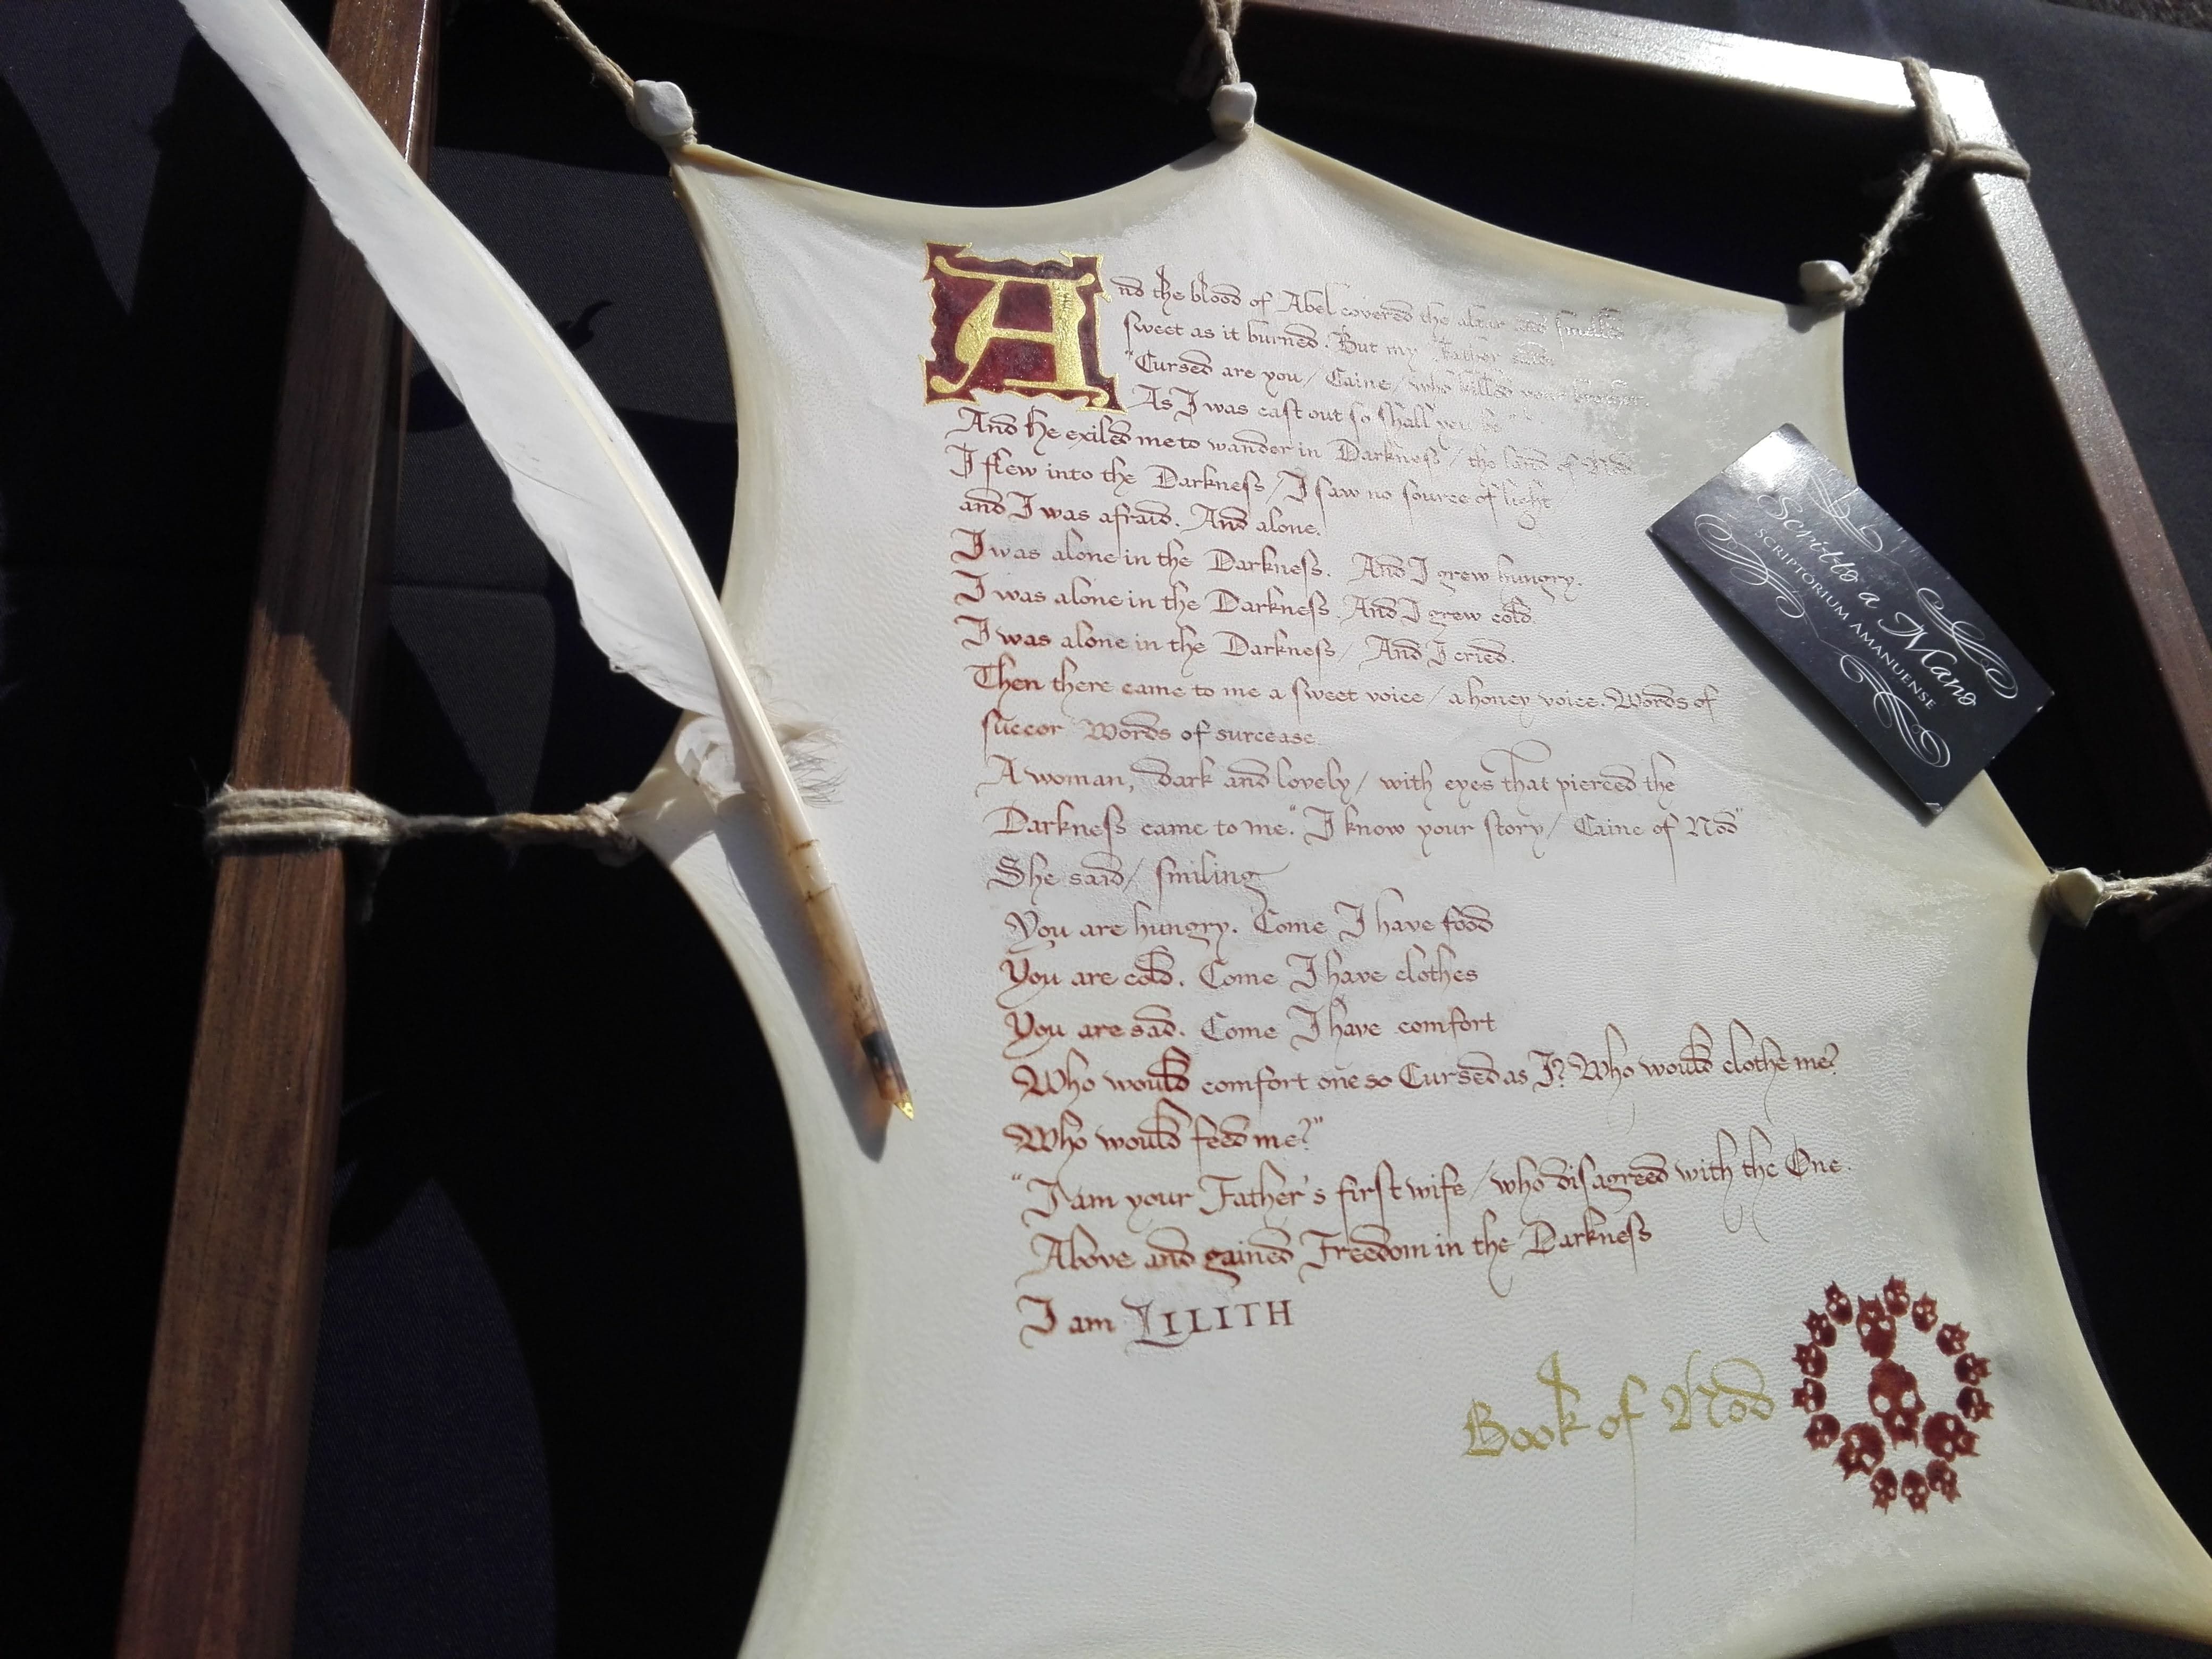 And the blood of Abel covered the altar and smelled
sweet as it burned. But my Father said
"Cursed are you/ Caine/ who killed your brother.
As I was cast out so shall you be"
And He exiled me to wander in Darkness/ the land of Nod
I flew into the Darkness/ I saw no source of light
and I was afraid. And alone.
I was alone in the Darkness. And I grew hungry.
I was alone in the Darkness. And I grew cold.
I was alone in the Darkness/ And I cried.
Then there came to me a sweet voice/ a honey voice. Words of
succor Words of surcease.
A woman, dark and lovely/ with eyes that pierced the
Darkness came to me. "I know your story/ Caine of Nod"
She said/ smiling
You are hungry. Come I have food
You are cold. Come I have clothes
You are sad. Come I have comfort
Who would comfort one so Cursed as I? Who would clothe me?
Who would feed me?"
"I am your Father's first wife/ who disagreed with the One
Above and gained Freedom in the Darkness
I am LILITH
Book of Nod
Scritto a Mano
SCRIPTORIUM AMANUENSE